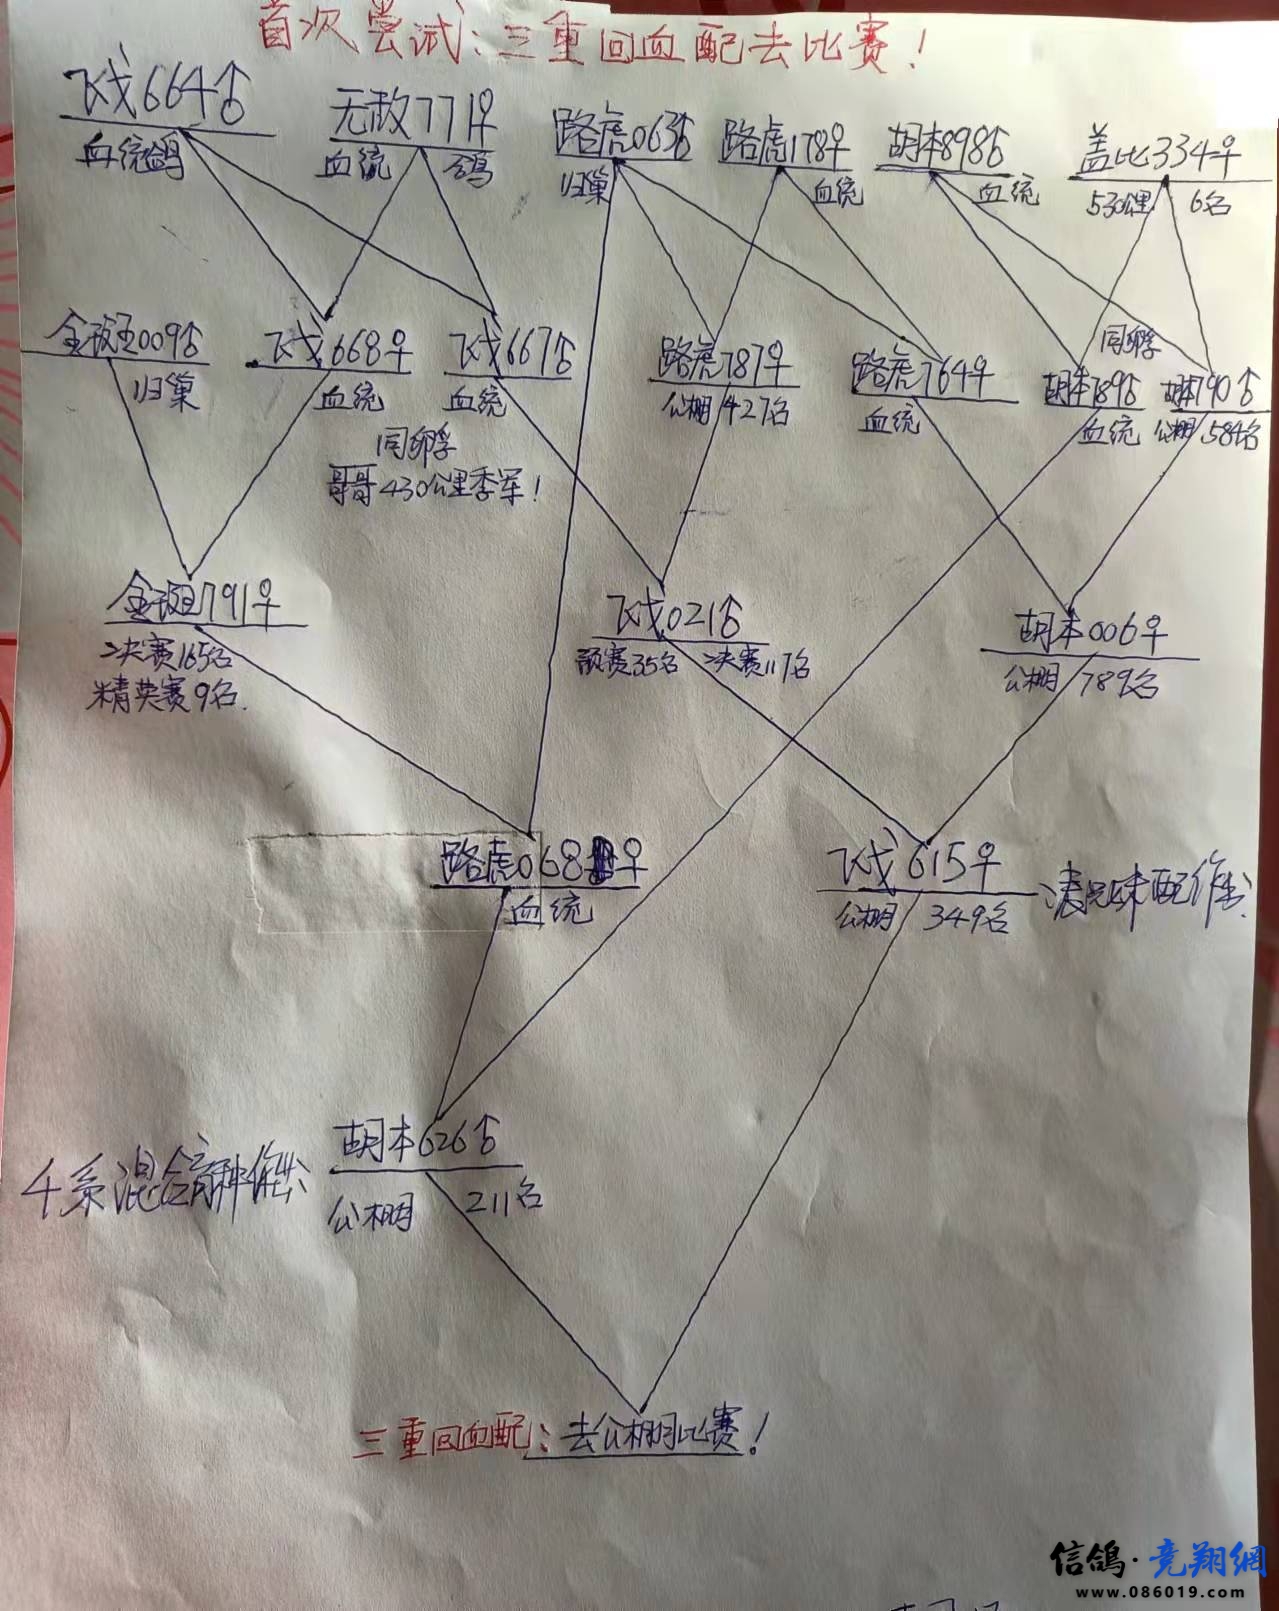 首次尝试:三重回血配去比赛!
飞戈664♂
血统鸽
无敌771♀
血统 鸽
路虎063♂
归巢
路虎178♀
血统
胡本898♂
血统
盖比334♀
530公里 6名
金斑009♂
归巢
飞戈668♀
血统
飞戈667♂
血统
同孵
哥哥430公里季军!
路虎787♀
公棚 427名
路虎764♀
血统
同孵
胡本789♂
血统
胡本790♂
公棚 584名
金斑791♀
决赛165名
精英赛9名.
飞戈021♂
预赛35名 决赛117名
胡本006♀
公棚 789名
路虎068♀
血统
飞戈615♀
公棚 349名
凑兄妹配作出
胡本626♂
公棚 211名
4系混合育种作出
三重回血配:去公棚比赛!
信鸽·竞翔網
www.086019.com